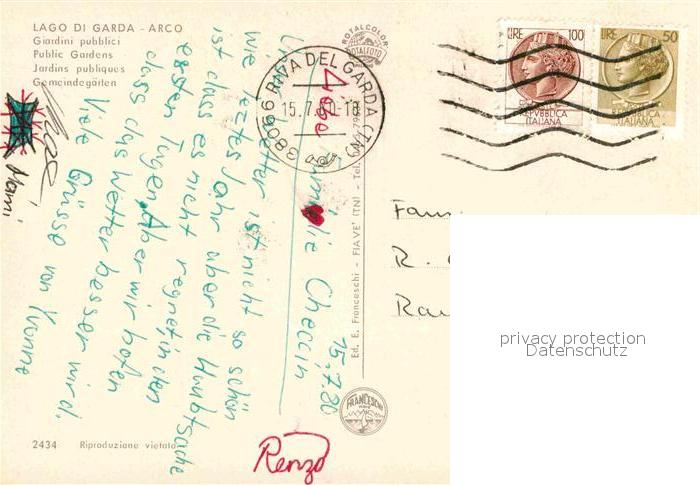 LAGO DI GARDA - ARCO
Giardini pubblici
Public Gardens
Jardins publiques
Gemeindegärten
ROTALCOLOR
ROTALFOTO
38066 RIVA DEL GARDA (TN)
15.7.
LIRE 100
REPUBBLICA
ITALIANA
LIRE 50
REPUBBLICA
ITALIANA
15.7.80
Liebe Familie Checcin
Wetter ist nicht so schön
wie letztes Jahr aber die Hauptsache
ist dass es nicht regnet in den
ersten Tagen. Aber wir hofen
dass das Wetter besser wird.
Viele Grüsse von Yvonne
Mami
Renzo
Fam
R.
Ed. E. Franceschi - FIAVE' (TN) - Tel.
FRANCESCHI
2434 Riproduzione vietata
privacy protection
Datenschutz